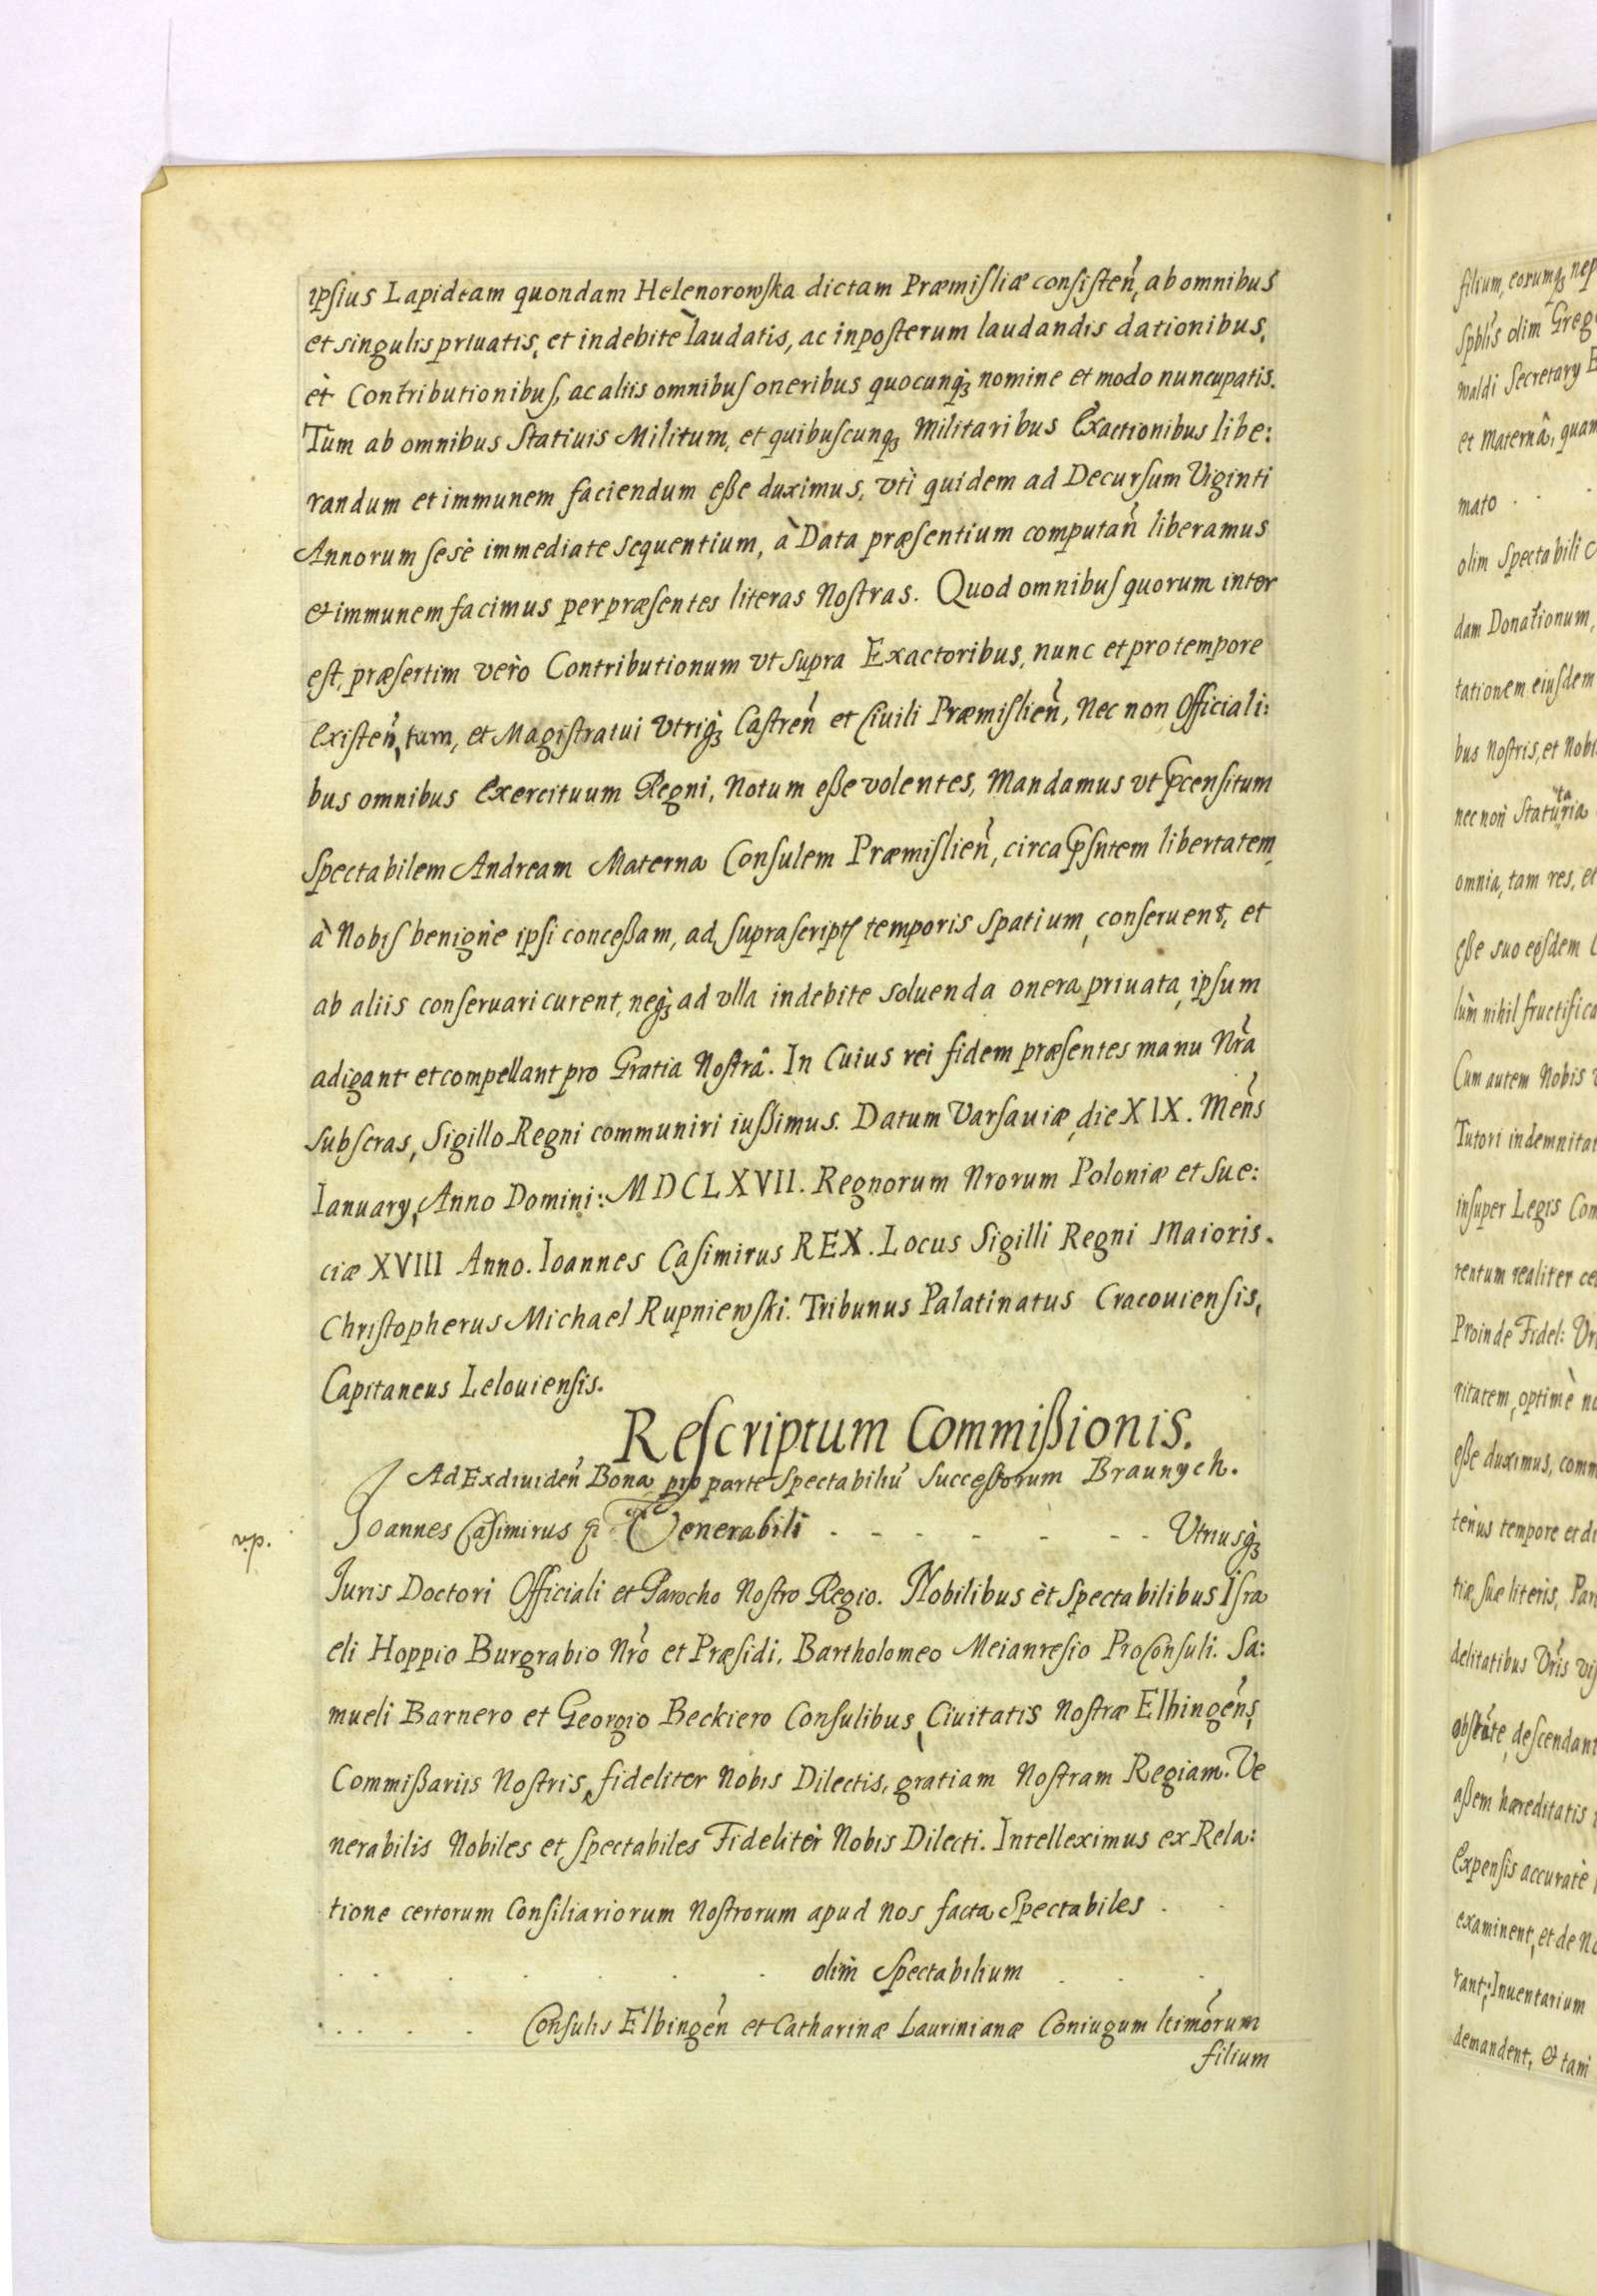 ipsius Lapideam quondam Helenorowſka dictam Præmiſliæ conſiſteñ, ab omnibus
et singulis priuatis, et indebitè laudatis, ac inpoſterum laudandis dationibus,
èt Contributionibuſ, ac aliis omnibuſ oneribus quocunqꝫ nomine et modo nuncupatis.
Tum ab omnibus Statiuis Militum, et quibuſcunqꝫ Militaribus Exactionibus libe:
randum et immunem faciendum eße duximus, vti quidem ad Decurſum Viginti
Annorum ſesè immediate sequentium, à Data præſentium computañ liberamus
et immunem facimus per præſentes literas Noſtras. Quod omnibuſ quorum inter
eſt, præſertim verò Contributionum vt supra Exactoribus, nunc et pro tempore
exiſteñ, tum, et Magiſtratui Vtriqꝫ Caſtreñ et Ciuili Præmiſlieñ, Nec non Officiali:
bus omnibus Exercituum Regni, Notum eße volentes, Mandamus vt p̄censitum
Spectabilem Andream Materna Conſulem Præmiſlieñ, circa p̄ſntem libertatem,
à Nobiſ benignè ipſi conceßam, ad ſupraſcripti temporis Spatium, conſeruent, et
ab aliis conſeruari curent, neqꝫ ad vlla indebite soluenda onera priuata, ipſum
adigant et compellant pro Gratia Noſtrâ. In Cuius rei fidem præſentes manu Nr̃a
Subſcras, Sigillo Regni communiri iußimus. Datum Varſauiæ, die XIX. Meñs
Ianuary, Anno Domini: MDCLXVII. Regnorum Nrorum Poloniæ et Sue:
ciæ XVIII Anno. Ioannes Caſimirus REX. Locus Sigilli Regni Maioris.
Chriſtopherus Michael Rupniewſki. Tribunus Palatinatus Cracouiensis,
Capitaneus Lelouienſis.
Reſcriptum Commißionis.
Ad Exdiuideñ Bona pro parte Spectabiliũ Succeßorum Braunych.
Joannes Caſimirus Venerabili . - - - - - - Vtriusqꝫ
Juris Doctori Officiali et Parocho Noſtro Regio. Nobilibus èt Spectabilibus Iſra
eli Hoppio Burgrabio Nr̃o et Præſidi, Bartholomeo Meianreſio ProConſuli. Sa:
mueli Barnero et Georgio Beckiero Conſulibus, Ciuitatis Noſtræ Elbingeñs,
Commißariis Noſtris, fideliter Nobis Dilectis, gratiam Noſtram Regiam. Ve
nerabilis Nobiles et Spectabiles Fideliter Nobis Dilecti. Intelleximus ex Rela:
tione certorum Conſiliariorum Noſtrorum apud Nos facta Spectabiles . .
. . . . . . . olim Spectabilium . . .
. . . . . Conſulis Elbingeñ et Catharinæ Laurinianæ Coniugum ltimõrum
filium
filium, eorumqꝫ nep
Spblis olim Greg
waldi Secretary
et Maternâ, quam
mato . . .
olim Spectabili
dam Donationum,
tationem eiuſdem
bus Noſtris, et Nobi
nec non Staturia
ta
omnia, tam res, et
eße suo eoſdem
lùm nihil fructifica
Cum autem Nobis
Tutori indemnitat
inſuper Legis Con
rentum realiter ce
Proinde Fidel: Vr
ritatem, optimè no
eße duximus, comm
tenus tempore et di
tiæ ſuæ literis, Par
delitatibus Vr̃is
descendant
aßem hæreditatis
Expenſis accuratè
examinent, et de No
rant; Inuentarium
demandent, & tam